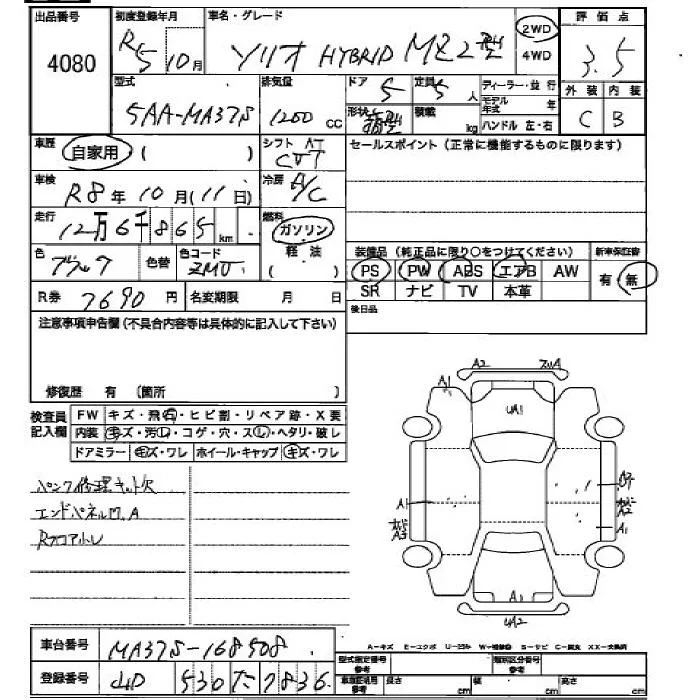 出品番号 初度登録年月 車名・グレード 評価点
4080 R5 10月 ソリオ HYBRID MZ 2型 2WD 4WD 3.5
型式 排気量 ドア 定員 ディーラー・並行 外装 内装
5AA-MA37S 1200 cc 5 5人 モデル年式 年 C B
形状 積載 kg ハンドル 左・右
車歴 自家用 ( ) シフト AT CVT セールスポイント(正常に機能するものに限ります)
車検 R8年10月(11日) 冷房 A/C
走行 12万6千865 km 燃料 ガソリン 軽油 ( )
色 ブラック 色替 色コード ZMV 装備品(純正品に限り○をつけてください) 新車保証書
PS PW ABS エアB AW 有・無
R券 7690円 名変期限 月 日 SR ナビ TV 本革
注意事項申告欄(不具合内容等は具体的に記入して下さい) 後日品
修復歴 有 (箇所 )
検査員記入欄 FW キズ・飛石・ヒビ割・リペア跡・X要
内装 キズ・汚レ・コゲ・穴・スレ・ヘタリ・破レ
ドアミラー キズ・ワレ ホイール・キャップ キズ・ワレ
パンク修理キット欠
エンドパネル凹、A
Rフロアサレ
A2 スリA
A1
UA1
A1
A2
A1
A1
UA2
A-キズ E-エクボ U-凹み W-補修跡 S-サビ C-腐食 XX-交換済
車台番号 MA37S-168508
型式指定番号 参考 類別区分番号 参考
登録番号 山口 530 た 7836
車庫証明用 参考 長さ cm 幅 cm 高さ cm